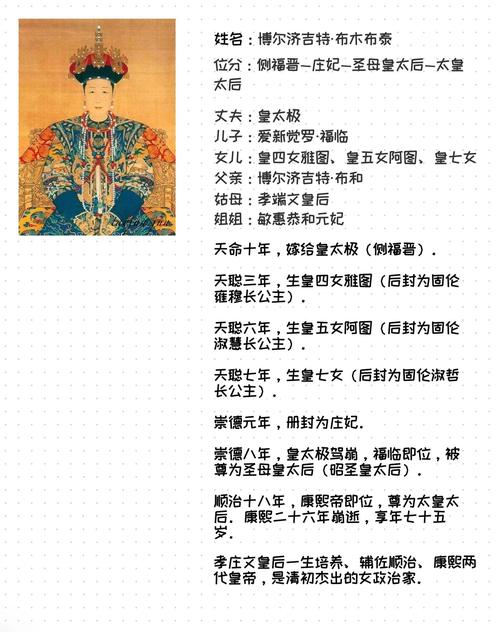 姓名：博尔济吉特·布木布泰
位分：侧福晋—庄妃—圣母皇太后—太皇
太后
丈夫：皇太极
儿子：爱新觉罗·福临
女儿：皇四女雅图、皇五女阿图、皇七女
父亲：博尔济吉特·布和
姑母：孝端文皇后
姐姐：敏惠恭和元妃
天命十年，嫁给皇太极（侧福晋）.
天聪三年，生皇四女雅图（后封为固伦
雍穆长公主）.
天聪六年，生皇五女阿图（后封为固伦
淑慧长公主）.
天聪七年，生皇七女（后封为固伦淑哲
长公主）.
崇德元年，册封为庄妃.
崇德八年，皇太极驾崩，福临即位，被
尊为圣母皇太后（昭圣皇太后）.
顺治十八年，康熙帝即位，尊为太皇太
后. 康熙二十六年崩逝，享年七十五
岁.
孝庄文皇后一生培养、辅佐顺治、康熙两
代皇帝，是清初杰出的女政治家.